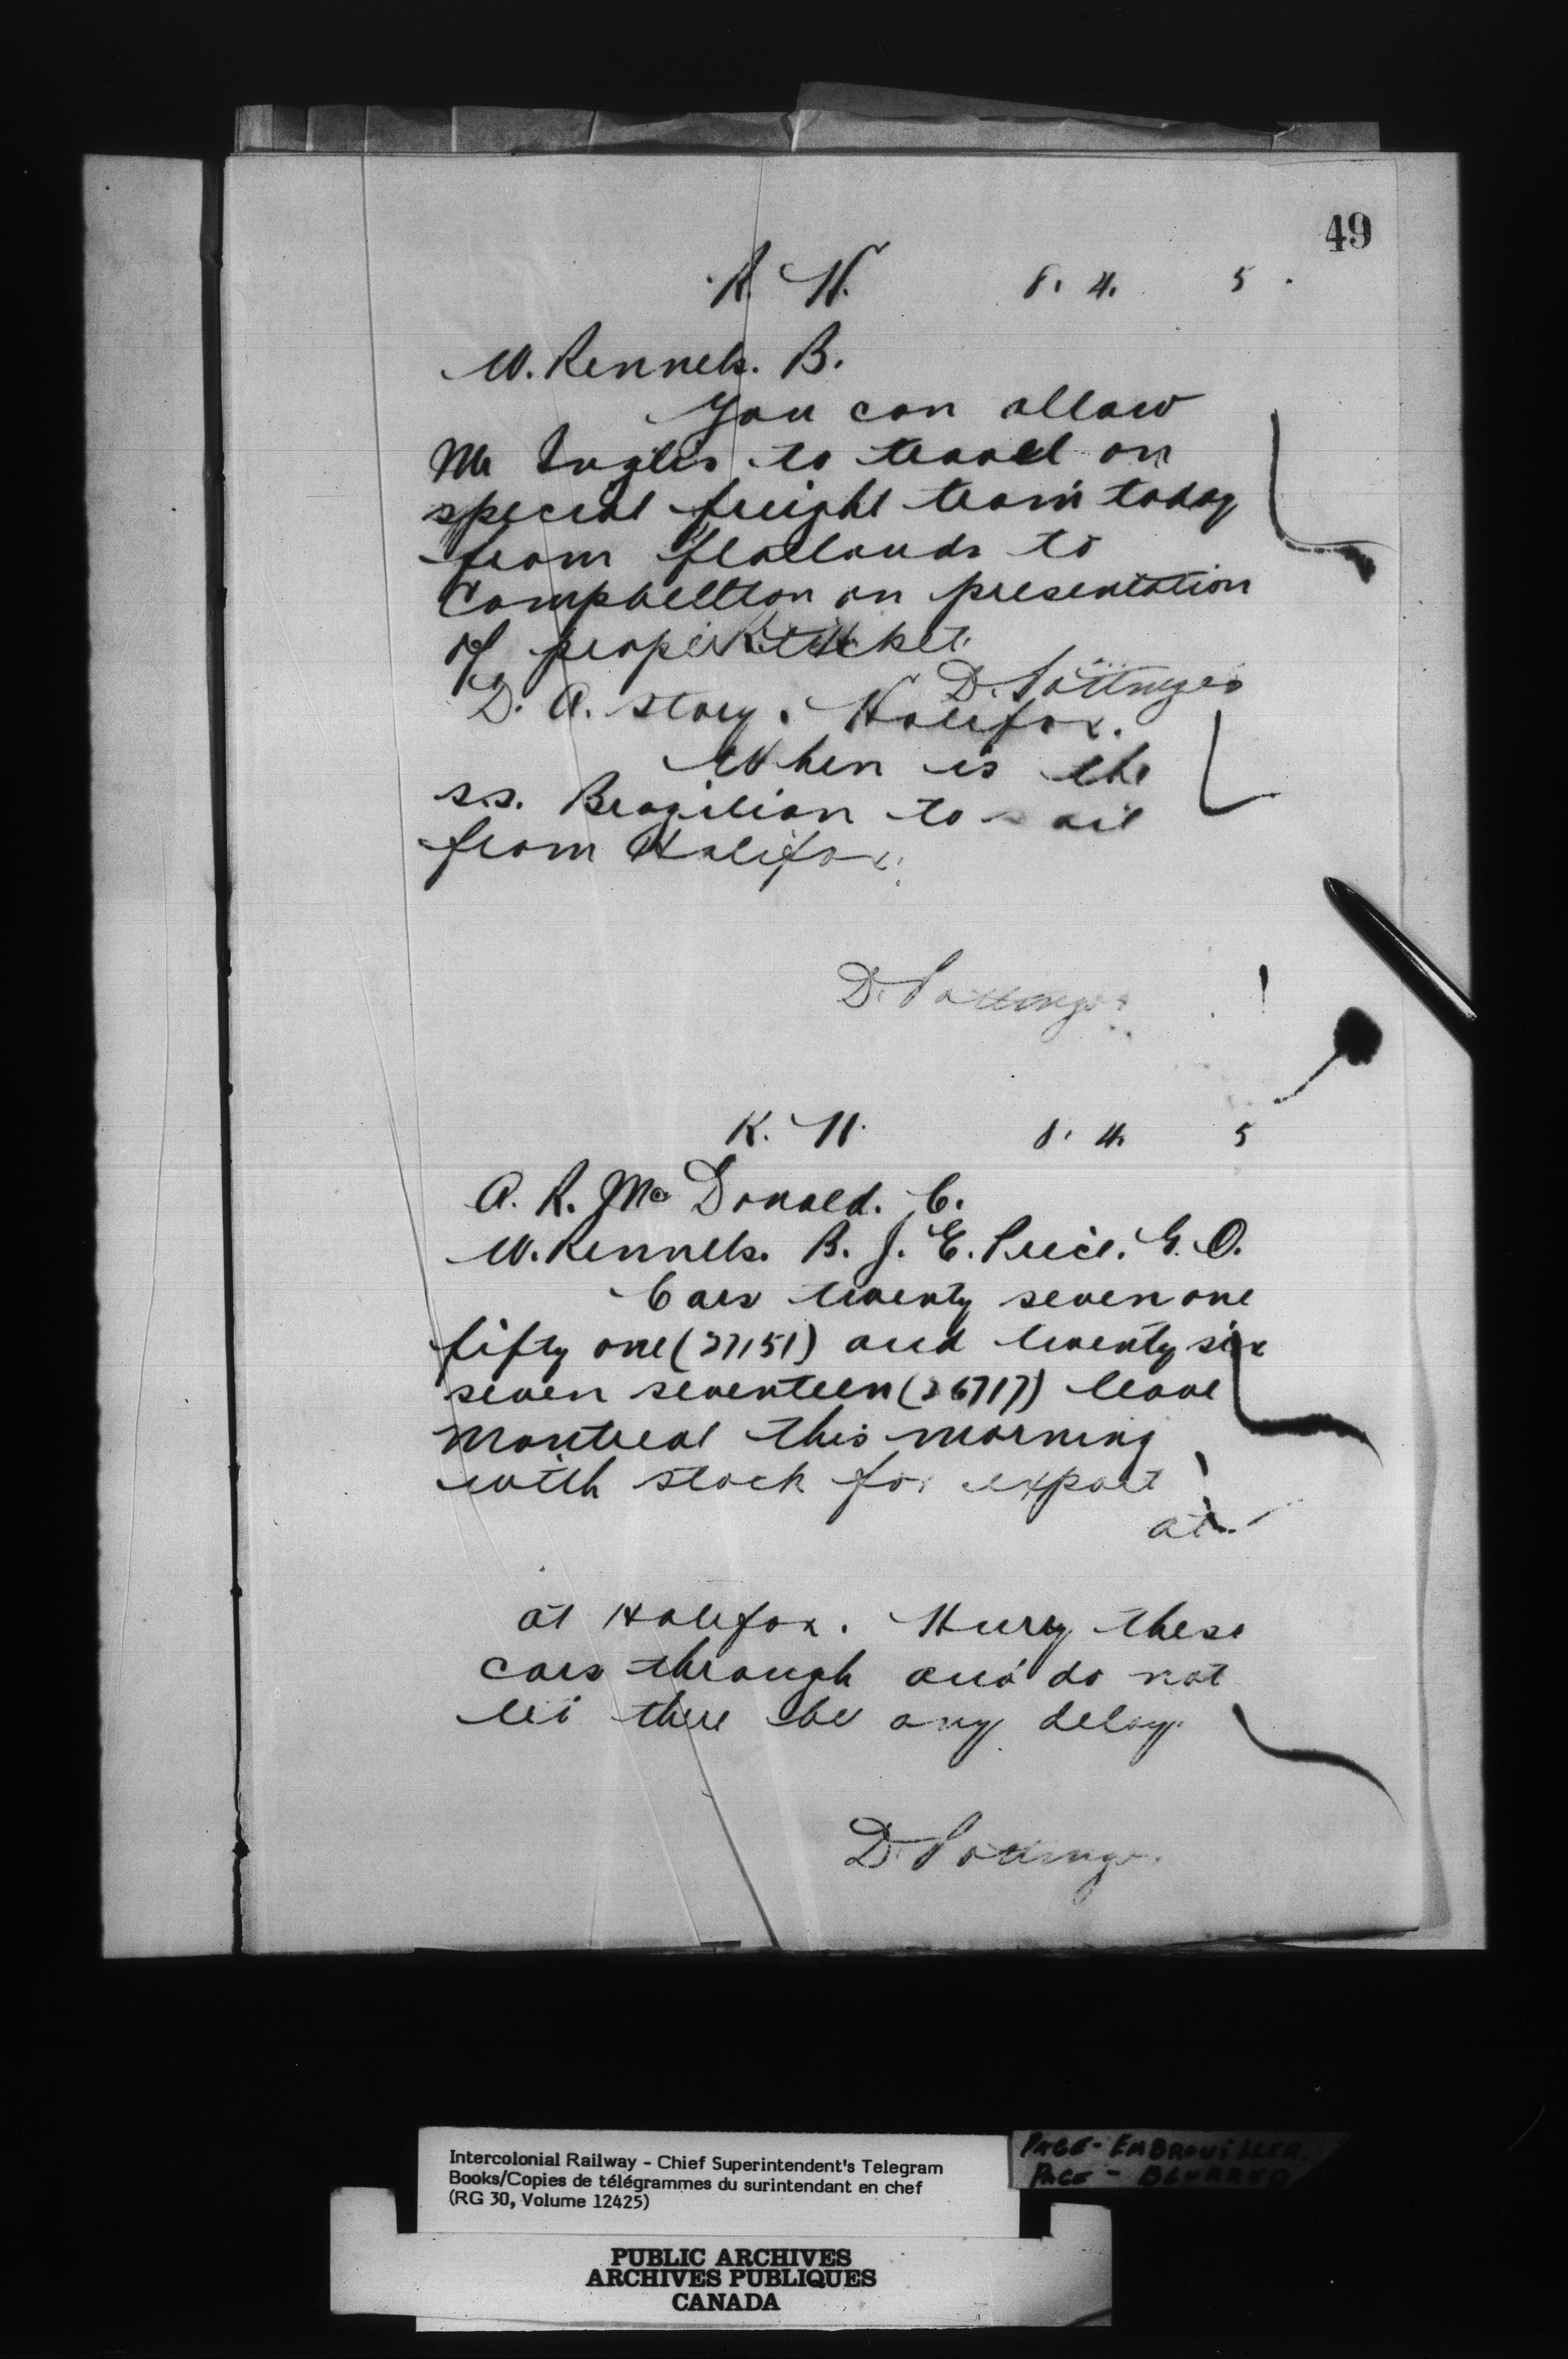 49
K. N. 8. 4. 5.
W. Rennels. B.
You can allow
Mr Inglis to travel on
special freight train today
from flatlands to
Campbellton on presentation
of proper ticket.
D. Pottinger
D. A. Story. Halifax.
When is the
ss. Brazilian to sail
from Halifax.
D. Pottinger
K. N. 8. 4. 5
A. R. McDonald. C.
W. Rennels. B. J. E. Price. G. O.
Cars twenty seven one
fifty one (27151) and twenty six
seven seventeen (26717) leave
Montreal this morning
with stock for export
at
at Halifax. Hurry these
cars through and do not
let there be any delay.
D. Pottinger
Intercolonial Railway - Chief Superintendent's Telegram
Books/Copies de télégrammes du surintendant en chef
(RG 30, Volume 12425)
PAGE - EMBROUILLER.
PAGE - BLURRED
PUBLIC ARCHIVES
ARCHIVES PUBLIQUES
CANADA